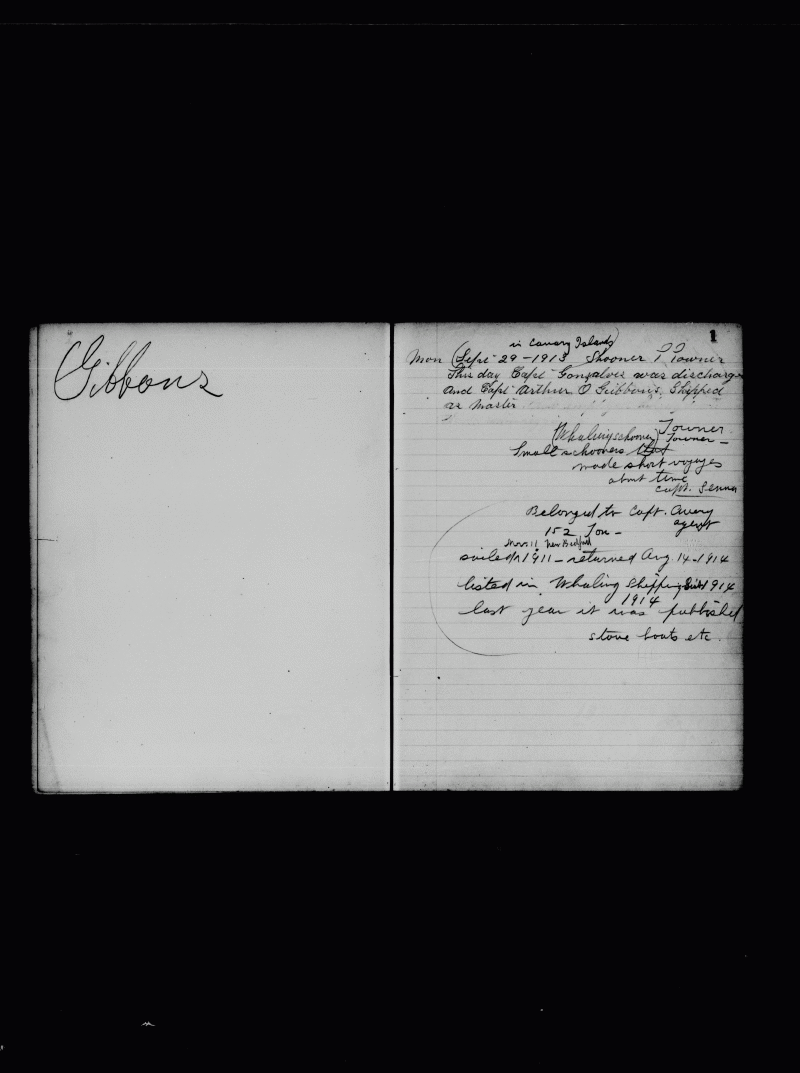 Gibbons
1
in Canary Islands)
Mon (Sept 29 - 1913 Shooner T Towner
This day Capt Gonsalves was discharge
and Capt Arthur O Gibbons, Shipped
as Master
Towner
(Whaling schooner) Towner -
Small schooners that
made short voyages
about time
Capt. Senna
Belonged to Capt. Avery
agent
152 Ton -
Nov 11 New Bedford
sailed 1911 - returned Aug 14 - 1914
listed in Whaling Shipping List 1914
1914
last year it was published
stove boats etc.